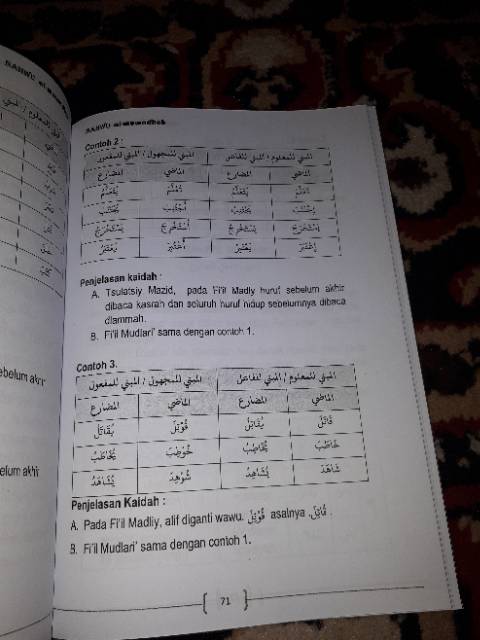 Contoh 2 :
المبني للمعلوم / المبني للفاعل المبني للمجهول / المبني للمفعول
الماضي المضارع الماضي المضارع
تَعَلَّمَ يَتَعَلَّمُ تُعُلِّمَ يُتَعَلَّمُ
اِجْتَنَبَ يَجْتَنِبُ اُجْتُنِبَ يُجْتَنَبُ
اِسْتَخْرَجَ يَسْتَخْرِجُ اُسْتُخْرِجَ يُسْتَخْرَجُ
يَعْتَبِرُ يُعْتَبَرُ
Penjelasan kaidah :
A. Tsulatsiy Mazid, pada Fi'il Madly huruf sebelum akhir
dibaca kasrah dan seluruh huruf hidup sebelumnya dibaca
dlammah.
B. Fi'il Mudlari' sama dengan contoh 1.
Contoh 3.
المبني للمعلوم / المبني للفاعل المبني للمجهول / المبني للمفعول
الماضي المضارع الماضي المضارع
قَاتَلَ يُقَاتِلُ قُوْتِلَ يُقَاتَلُ
خَاطَبَ يُخَاطِبُ خُوْطِبَ يُخَاطَبُ
شَاهَدَ يُشَاهِدُ شُوْهِدَ يُشَاهَدُ
Penjelasan Kaidah :
A. Pada Fi'il Madliy, alif diganti wawu. قُوْتِلَ asalnya قَاتَلَ.
B. Fi'il Mudlari' sama dengan contoh 1.
71